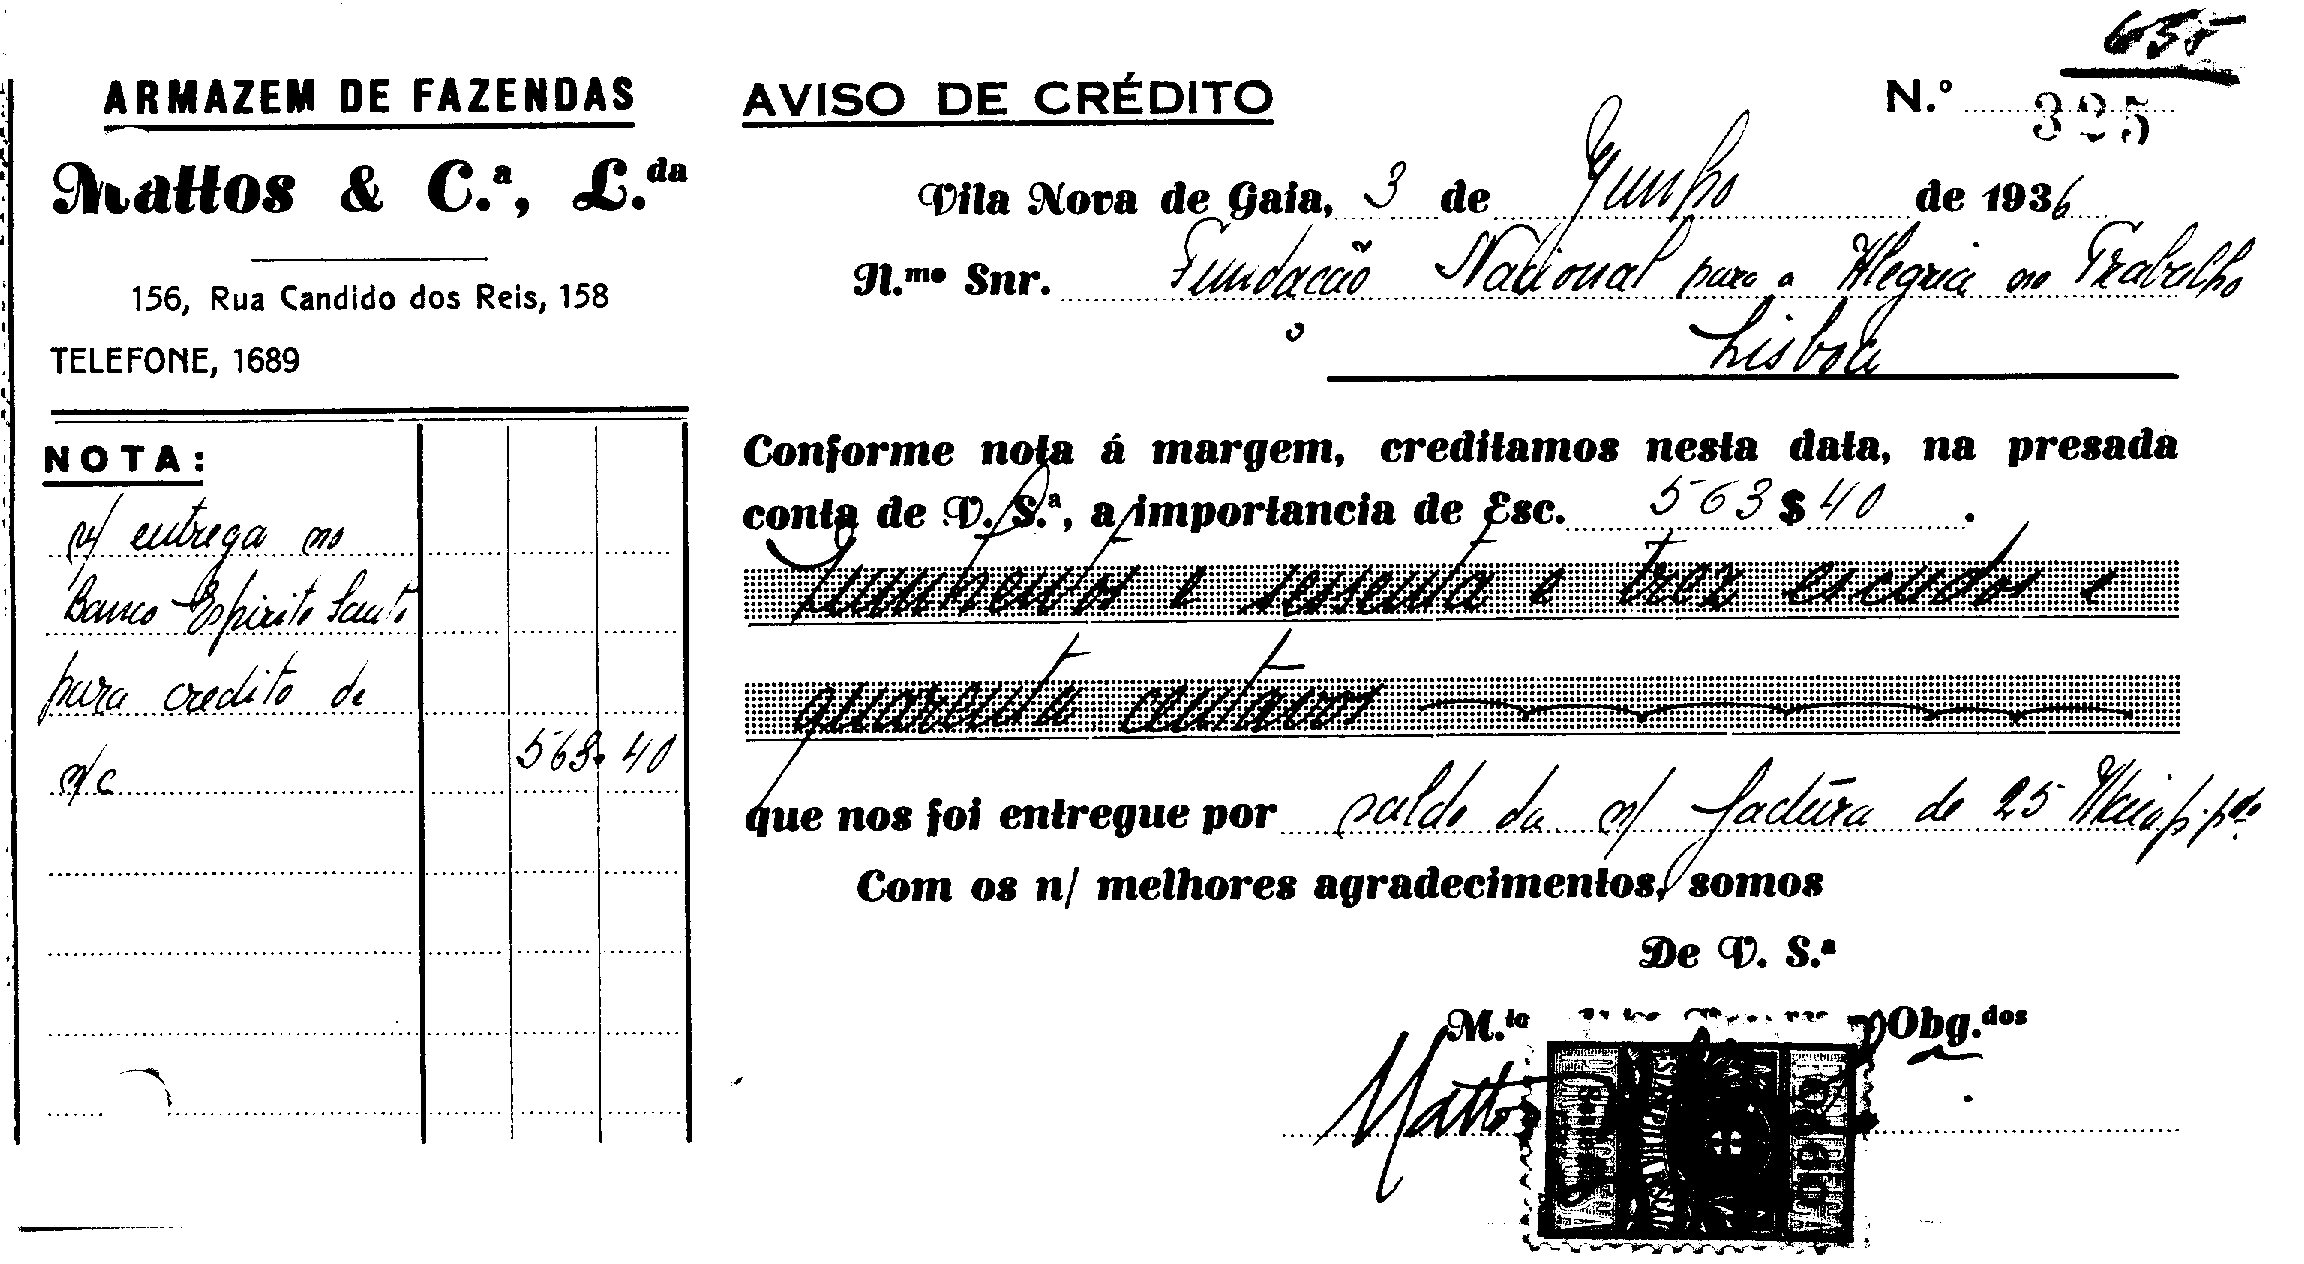 655
ARMAZEM DE FAZENDAS
Mattos & C.ª, L.da
156, Rua Candido dos Reis, 158
TELEFONE, 1689
AVISO DE CRÉDITO
N.º 325
Vila Nova de Gaia, 3 de Junho de 1936
N.mo Snr. Fundação Nacional para a Alegria no Trabalho
Lisboa
NOTA:
v/ entrega no
Banco Espirito Santo
para credito de
n/c 563.40
Conforme nota á margem, creditamos nesta data, na presada
conta de V. S.ª, a importancia de Esc. 563$40.
Quinhentos e sessenta e trez escudos e
quarenta centavos
que nos foi entregue por saldo da n/ factura de 25 Maio p. pdo.
Com os n/ melhores agradecimentos, somos
De V. S.ª
M.to Obg.dos
Mattos